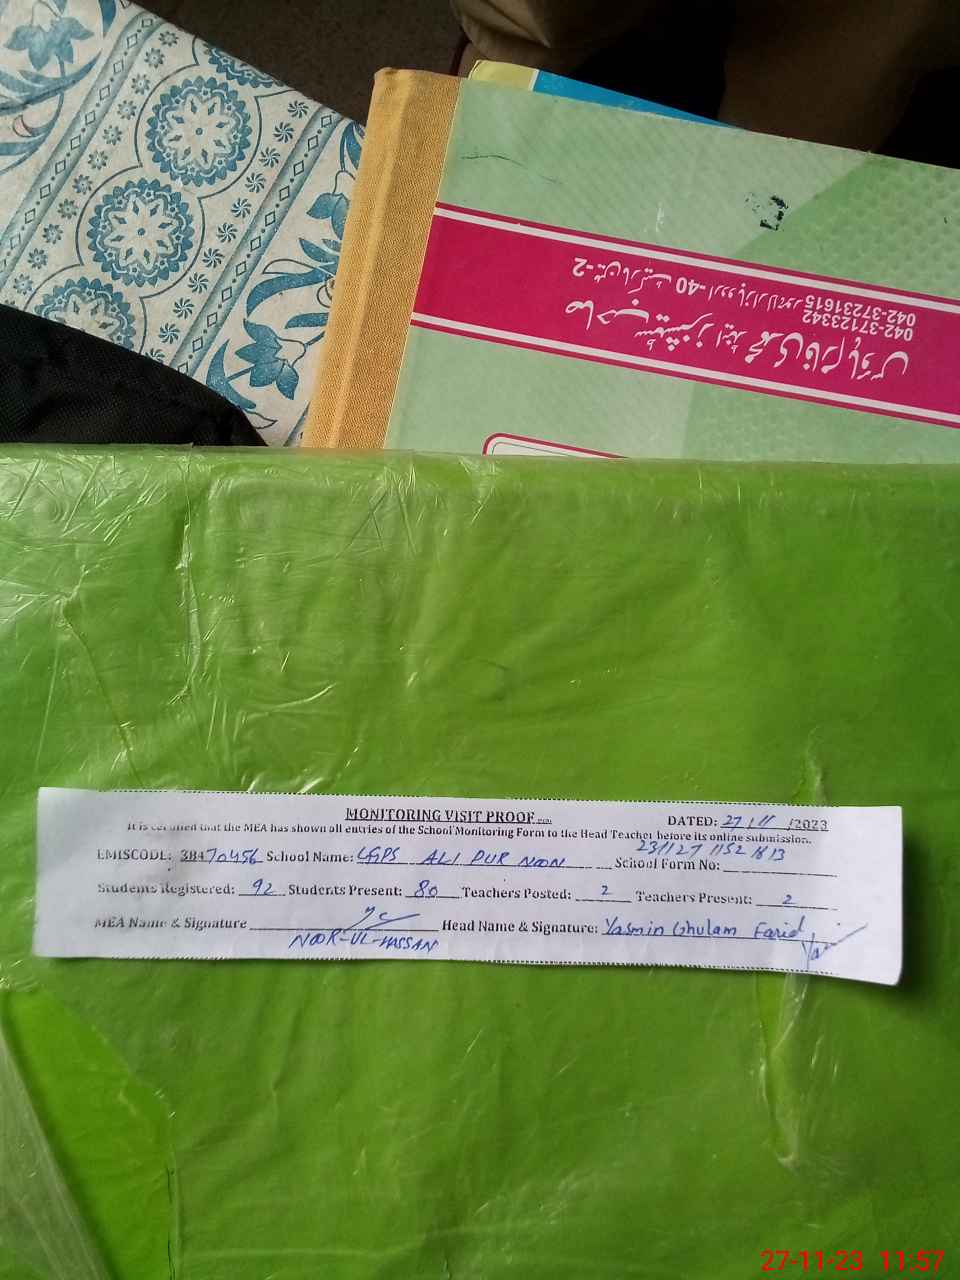 042-37123342
042-37231615
2-
40-
MONITORING VISIT PROOF
DATED: 27/11/2023
It is certified that the MEA has shown all entries of the School Monitoring Form to the Head Teacher before its online submission.
EMISCODE: 38470456 School Name: GGPS ALI PUR NOON School Form No: 231127 1152 1813
Students Registered: 92 Students Present: 80 Teachers Posted: 2 Teachers Present: 2
MEA Name & Signature Head Name & Signature: Yasmin Ghulam Farid
NOOR-UL-HASSAN
27-11-23 11:57